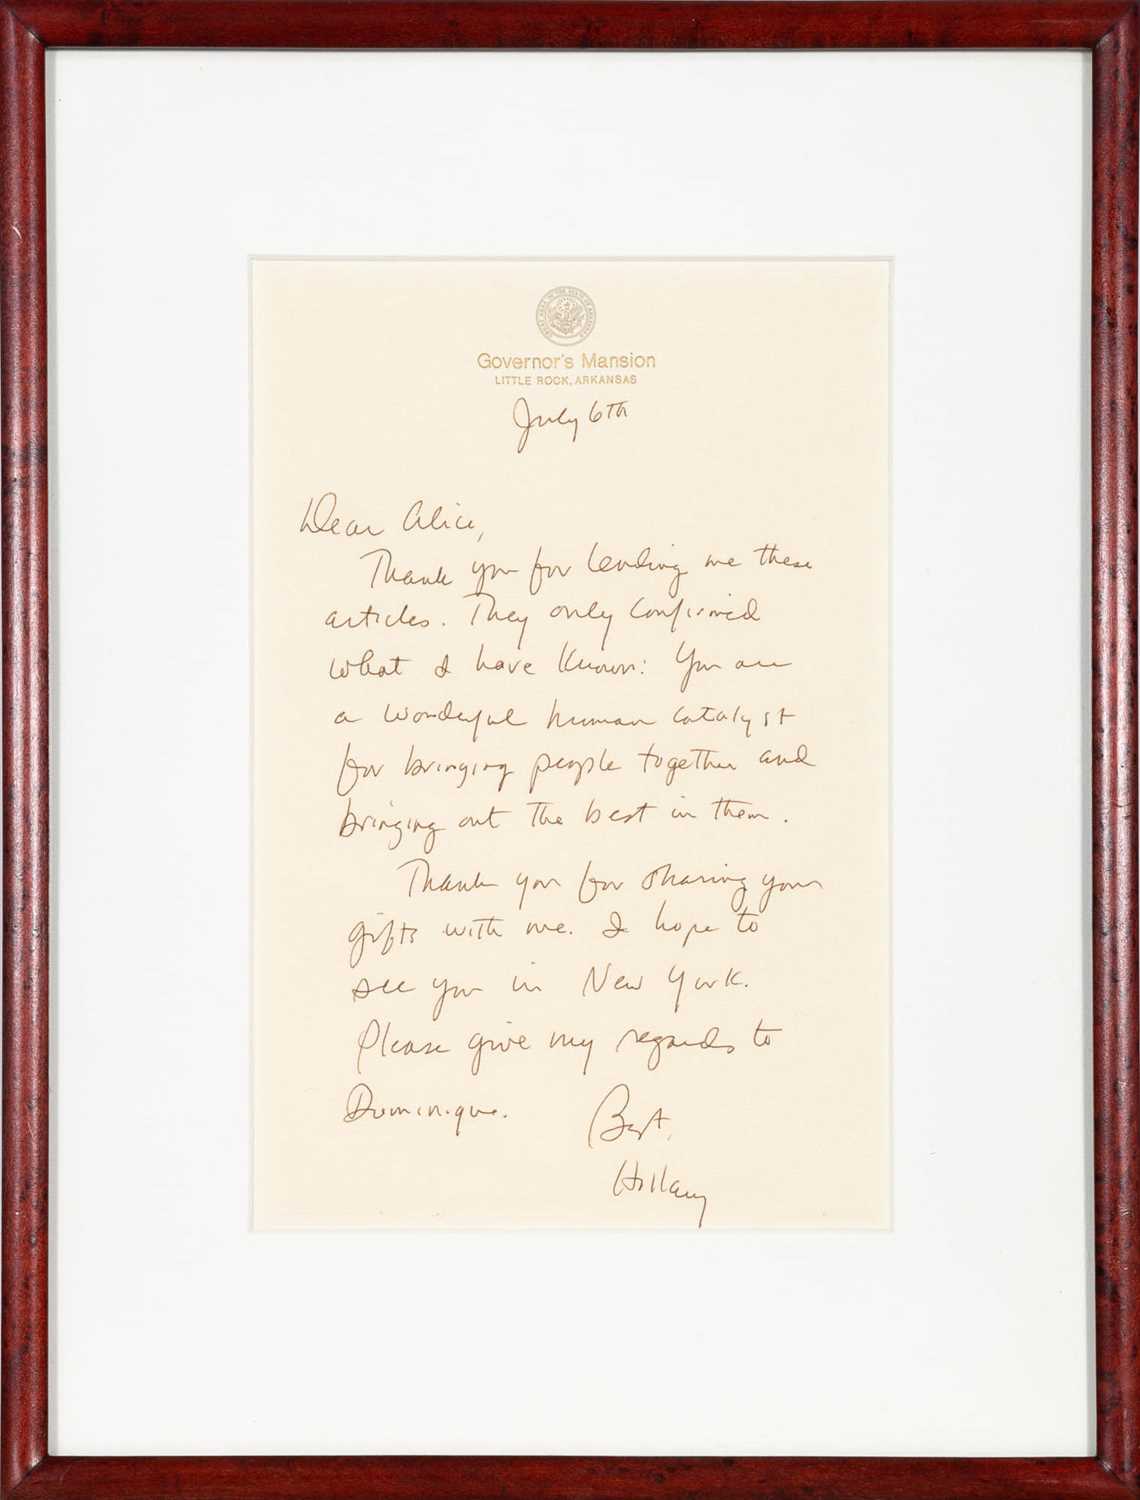 GREAT SEAL OF THE STATE OF ARKANSAS
Governor's Mansion
LITTLE ROCK, ARKANSAS
July 6th
Dear Alice,
Thank you for lending me these
articles. They only confirmed
what I have known: You are
a wonderful human catalyst
for bringing people together and
bringing out the best in them.
Thank you for sharing your
gifts with me. I hope to
see you in New York.
Please give my regards to
Dominique.
Best,
Hillary